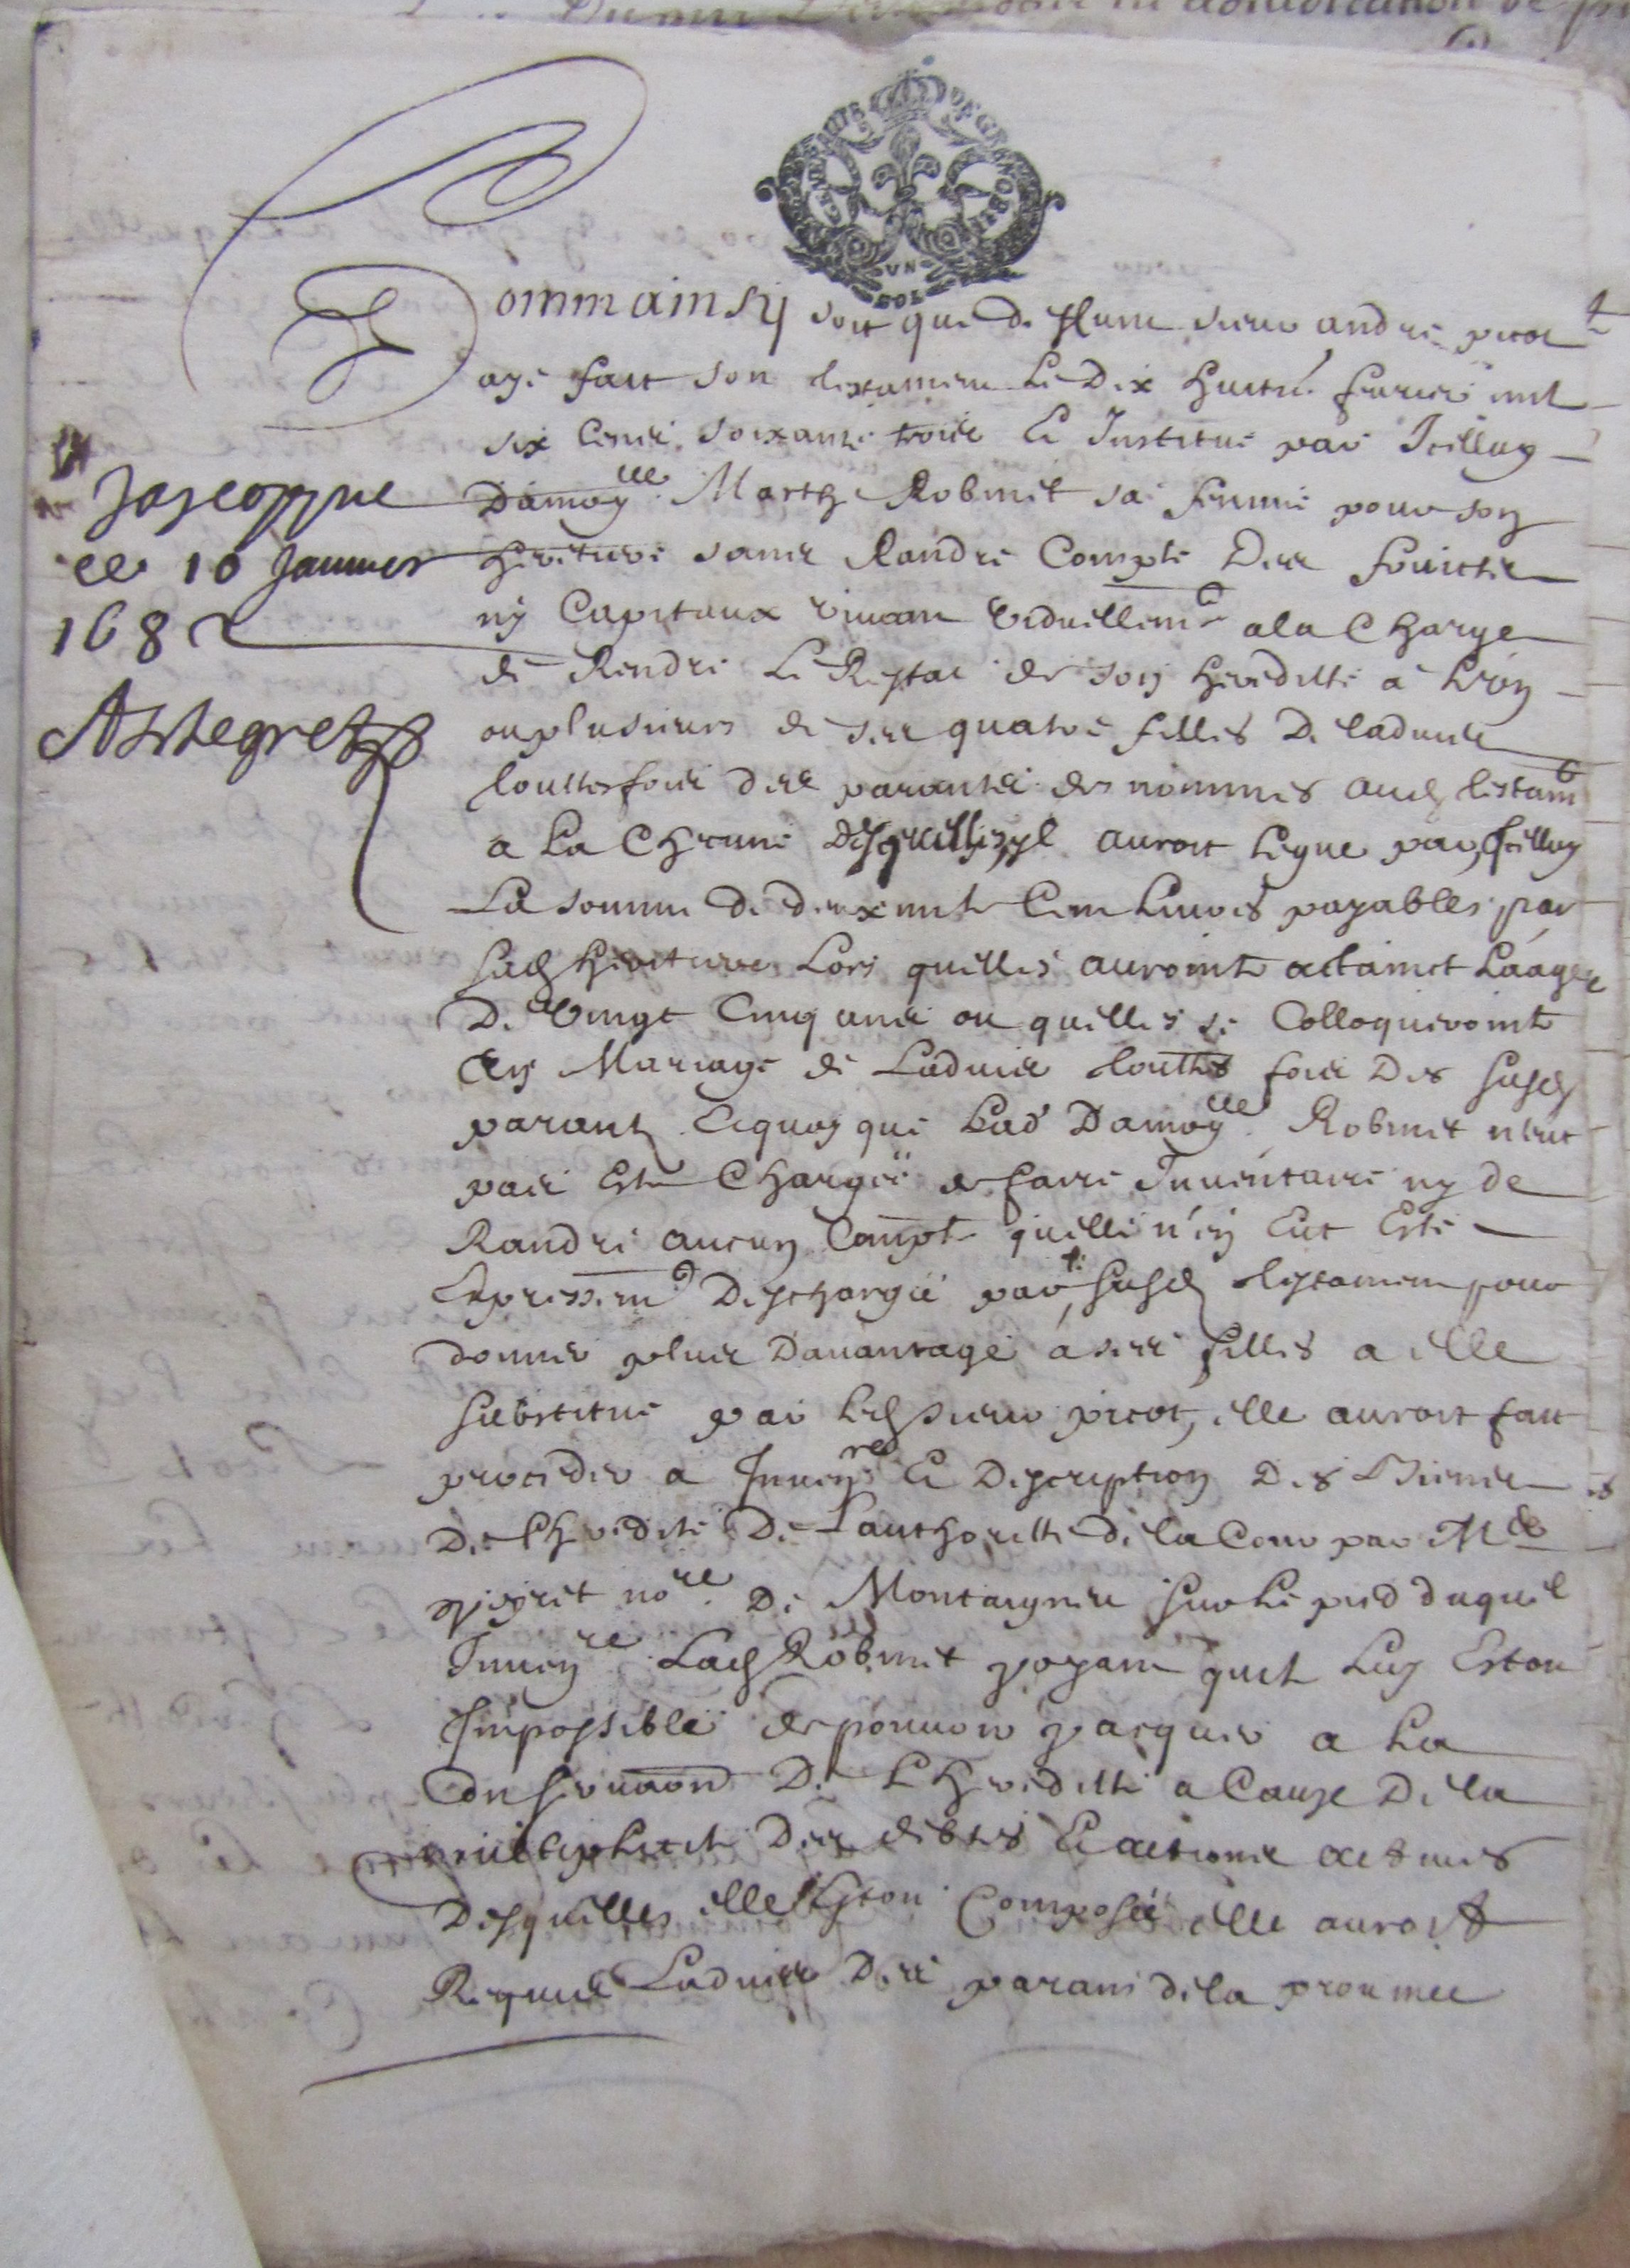 GENERALITE DE GRENOBLE
UN
SOL
Commainsy soit que deffunt sieur andre picot
aye fait son testament le dix huict.e feurier mil
six cents soixante trois Et Institué par Icelluy
Damoy.lle Marth Robinet sa femme pour son
heritiere sans Randre Compte Des fruicts
ny Capitaux viuant viduellem.t ala Charge
de Rendre Le Restat de son hereditté a L'vn
ou plusieurs de ses quatre filles De laduis
touttesfois des parants de nommés aud testam.t
a La Chacune desquelles,yl auroit Legué par Icelluy
La somme de deux mil Cent Liures payables par
sad heritiere Lors quelles auroint attainct Láage
De Vingt Cinq ans ou quelles se Colloqueroint
En Mariage de Laduis touttes fois Des susd
parants Et quoy que Lad Damoy.lle Robinet n'eut
pas Esté Chargée de faire Inuentaire ny de
Randre aucun Compte quelle n'en Eut Esté
Expressem.t Deschargée par le susd testament pour
donner plus Dauantage á ses filles a elle
substitué par led sieur picot, elle auroit fait
proceder a Inuen.re Et Description Des Biens
De Lheredité De Lauthoritté de la Cour par M.e
no.re De Montaigneu sur Le pied duquel
Inuen.re Lad Robinet voyant quil Luy Estoit
Impossible de pouuoir vacquer a La
Conseruaon De Lhereditté a Cauze De la
multiplicité Des debtes Et actions actiues
Desquelles elle Estoit Composée elle auroit
Requis Laduis Des parans de la proumee
Jay coppie
le 10 Januier
1682